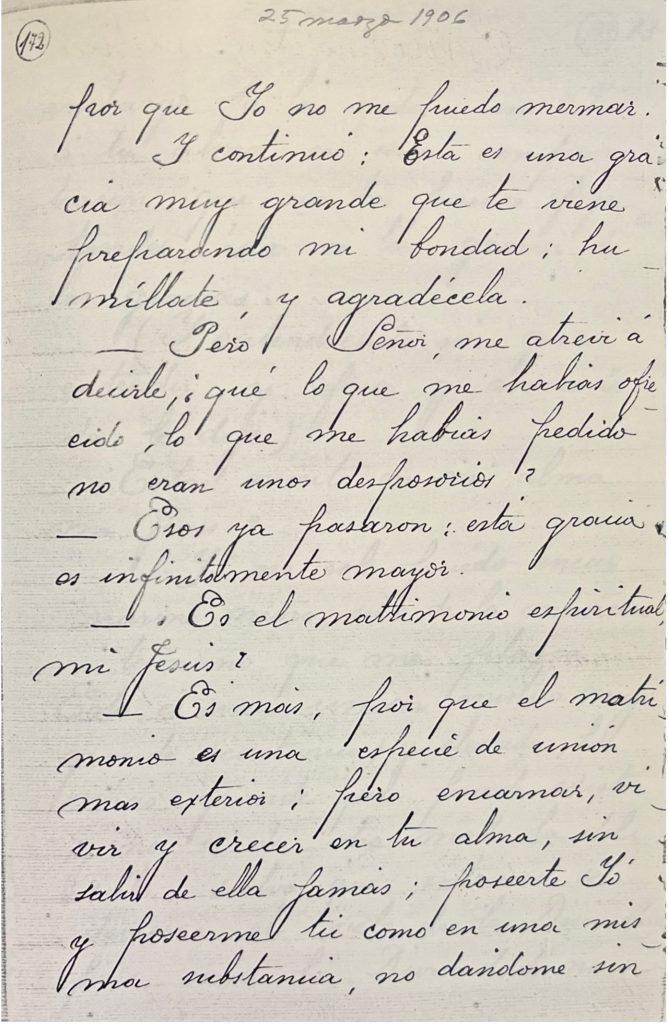 25 marzo 1906
172
por que Yo no me puedo mermar.
Y continuó: Esta es una gra
cia muy grande que te viene
preparando mi bondad; hu
míllate y agradécela.
— Pero Señor, me atreví á
decirle, ¿qué lo que me habías ofre
cido, lo que me habías pedido
no eran unos desposorios?
— Esos ya pasaron: está gracia
es infinitamente mayor.
— ¿Es el matrimonio espiritual,
mi Jesús?
— Es más, por que el matri
monio es una especie de unión
mas exterior; pero encarnar, vi
vir y crecer en tu alma, sin
salir de ella jamás; poseerte Yó
y poseerme tú como en una mis
ma substancia, no dándome sin